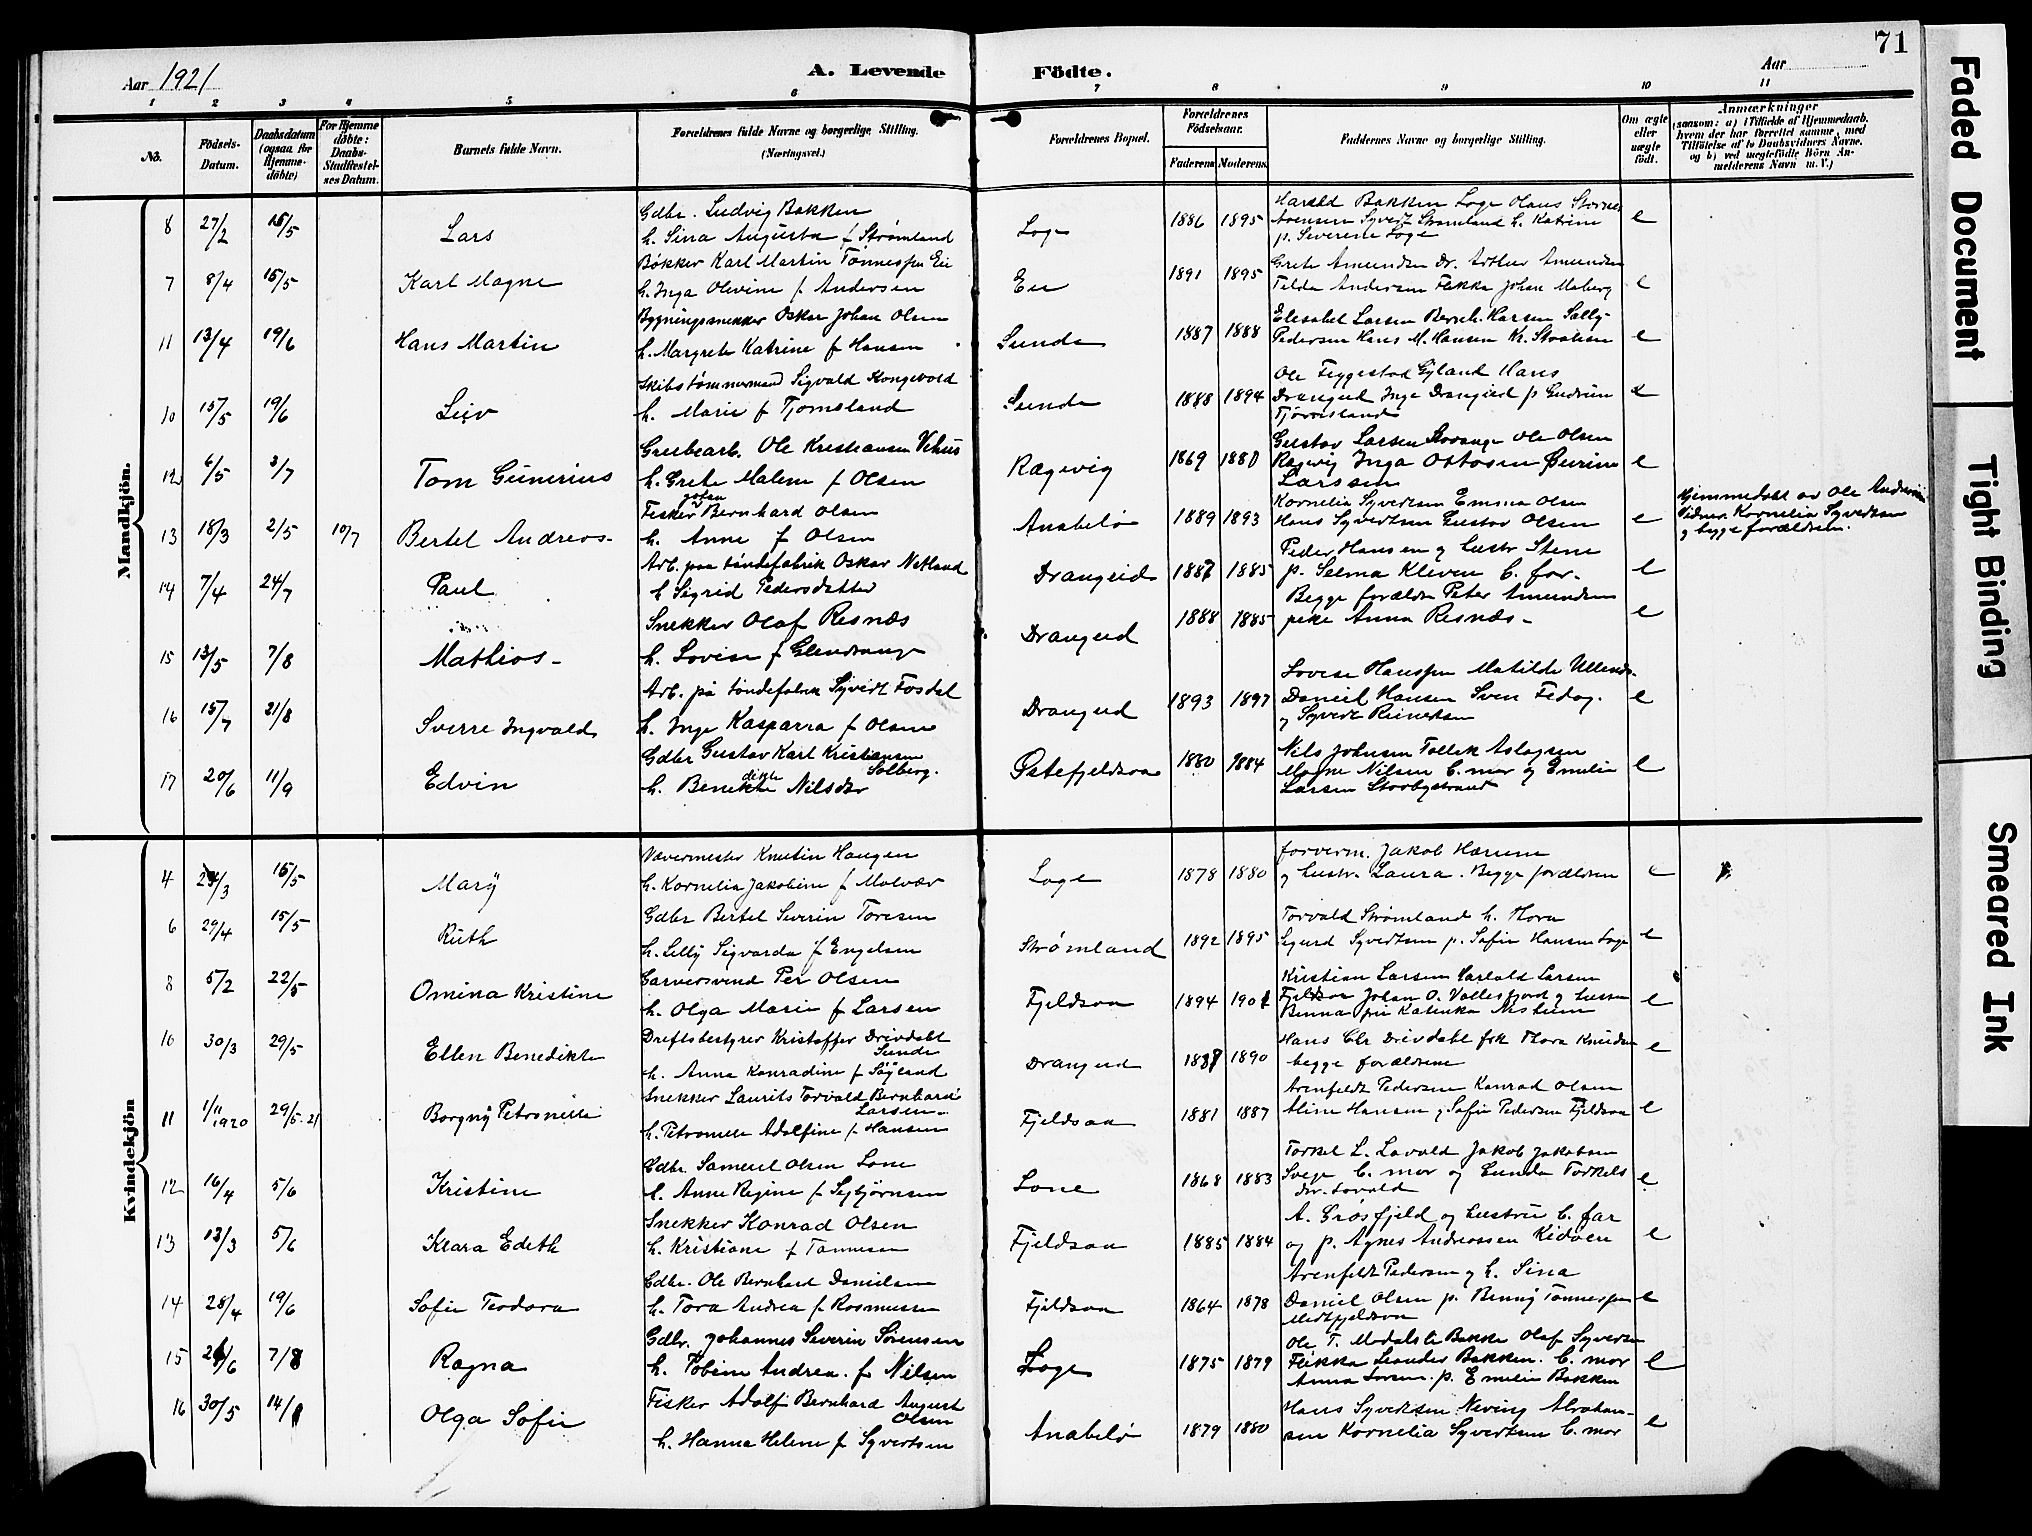 71
Aar 1921
A. Levende Födte.
Aar
1 2 3 4 5 6 7 8 9 10 11
No.
Födsels-Datum.
Daabsdatum (ogsaa for Hjemme-döbte)
For Hjemme döbte: Daabs-Stadfæstel-ses Datum.
Barnets fulde Navn.
Forældrenes fulde Navne og borgerlige Stilling. (Næringsvei.)
Forældrenes Bopæl.
Forældrenes Födselsaar.
Faderens Moderens.
Faddernes Navne og borgerlige Stilling.
Om ægte eller uægte födt.
Anmærkninger (saasom: a) i Tilfælde af Hjemmedaab, hvem der har forrettet samme, med Tilföielse af to Daabsvidners Navne, og b) ved uægtefödte Börn An-melderens Navn m. V.)
Mandkjön.
8 27/2 15/5 Lars
Gdbr. Ludvig Bakken
h. Sina Augusta f Strømland
Loge 1886 1895
Harald Bakken Loge Hans
Syvert Strømland h. Katrine
p. Severine Loge
e
7 8/4 15/5 Karl Magne
Bøkker Karl Martin Tønnesen Eie
h. Inga Olevine f Andersen
Eie 1891 1895
Grete Amundsen Dr. Arthur Amundsen
Tilda Andersen Flikka Johan Moberg
e
11 13/4 19/6 Hans Martin
Bygningssnekker Oskar Johan Olsen
h. Margrete Katrine f Hansen
Sunde 1887 1888
Elisabet Larsen Bernh. Larsen Sally
Pedersen Hans M. Hansen Kr.
e
10 15/5 19/6 Leiv
Skibstømmermand Sigvald Kongevold
h. Marie f Tjomsland
Sunde 1888 1894
Ole Feggestad Gyland Hans
Drangeid Inga Drangeid p. Gudrun
Tjomsland
e
12 6/5 3/7 Tom Gunerius
Grubearb. Ole Kristiansen Vehus
h. Grete Malene f Olsen
Rægevig 1869 1880
Gustav Larsen Ole Olsen
Rægevig Inga Ottosen
Larssen
e
13 18/3 2/5 10/7 Bertel Andreas
Johan
Fisker Bernhard Olsen
h. Anne f Olsen
Anabelø 1889 1893
Kornelia Syvertsen Emma Olsen
Hans Syvertsen Gustav Olsen
e
Hjemmedøbt av Ole
Vidner Kornelia Syvertsen
og begge forældren.
14 7/4 24/7 Paul
Arb. paa tøndefabrik Oskar Netland
h Sigrid Pedersdatter
Drangeid 1887 1885
Peder Hansen og hustr Stene
p. Selma Kleven B. for.
e
15 13/5 7/8 Mathias
Snekker Olaf Resnæs
h. Lovise f Glendrange
Drangeid 1888 1885
Begge forældre Peter Amundsen
Anna Resnæs
e
16 15/7 21/8 Sverre Ingvald
Arb. på tøndefabrik Syvert Fosdal
h. Inga Kasparra f Olsen
Drangeid 1893 1897
Lovise Hansen Matilde
Daniel Hansen Sven
og Syvert
e
17 20/6 11/9 Edvin
Gdbr Gustav Karl Kristiansen
Solberg.
h. Benedikte Nilsdtr
Østefjeldsaa 1880 1884
Nils Johnsen Tollek Aslagsen
Magne Nilsen B. mor og Emelie
Larsen
e
Kvindekjön
4 24/3 15/5 Mary
Vævermester Knutin Haugen
h. Kornelia Jakobine f Molvær
Loge 1878 1880
forverm. Jakob
og hustr. Laura. Begge forældren
e
6 29/4 15/5 Ruth
Gdbr Bertel Severin Toresen
h. Lilly Sigvarda f Engelsen
Strømland 1892 1895
Torvald Strømland h. Thora
Sigurd Syvertsen p. Sofie Hansen Loge
e
8 5/2 22/5 Omina Kristine
Garversvend Per Olsen
h. Olga Marie f Larsen
Fjeldsaa 1894 1901
Kristian Larsen Harald Larsen
Fjeldsaa Johan O.
e
10 30/3 29/5 Ellen Benedikte
Driftsbestyrer Kristoffer Drivdahl
Sunde
h. Anna Konradine f Søyland
Drangeid 1887 1890
Hans Chr Drivdahl frk Thora Knudsen
begge forældrene
e
11 1/11 1920 29/5-21 Borgny Petronelle
Snekker Laurits Torvald Bernhard
Larsen
h. Petronelle Adolfine f Hansen
Fjeldsaa 1881 1887
Arenfeldt Pedersen Konrad Olsen
Aline Hansen og Sofie Pedersen Fjeldsaa
e
12 16/4 5/6 Kristine
Gdbr. Samuel Olsen Lone
h. Anne Regine f Sejbjørnsen
Lone 1868 1883
Torkel L. Lavold Jakob Jakobsen
Svege B. mor og Gunda Torkels
dtr. Lovald
e
13 13/3 5/6 Klara Edeth
Snekker Konrad Olsen
h. Kristiane f Tønnesen
Fjeldsaa 1885 1884
A. Grøsfjeld og hustru B. far
og p. Agnes Andreassen
e
14 28/4 19/6 Sofie Teodora
Gdbr. Ole Bernhard Danielsen
h. Tora Andrea f Rasmussen
Fjeldsaa 1864 1878
Arenfeldt Pedersen og h. Sina
Daniel Olsen p. Benny Tønnessen
Midtfjeldsaa
e
15 26/6 7/8 Ragna
Gdbr. Johannes Severin Sørensen
h. Tobine Andrea f Nilsen
Loge 1875 1879
Ole T. Bakke Olaf Syvertsen
Flikka Leander Bakken. B. mor
Anna p. Emelie Bakken
e
16 30/5 14/8 Olga Sofie
Fisker Adolf Bernhard August
Olsen
h. Hanna Helene f Syvertsen
Anabelø 1879 1880
Hans Syvertsen Abraham-
sen Kornelia Syvertsen B. mor
e
Faded Document
Tight Binding
Smeared Ink